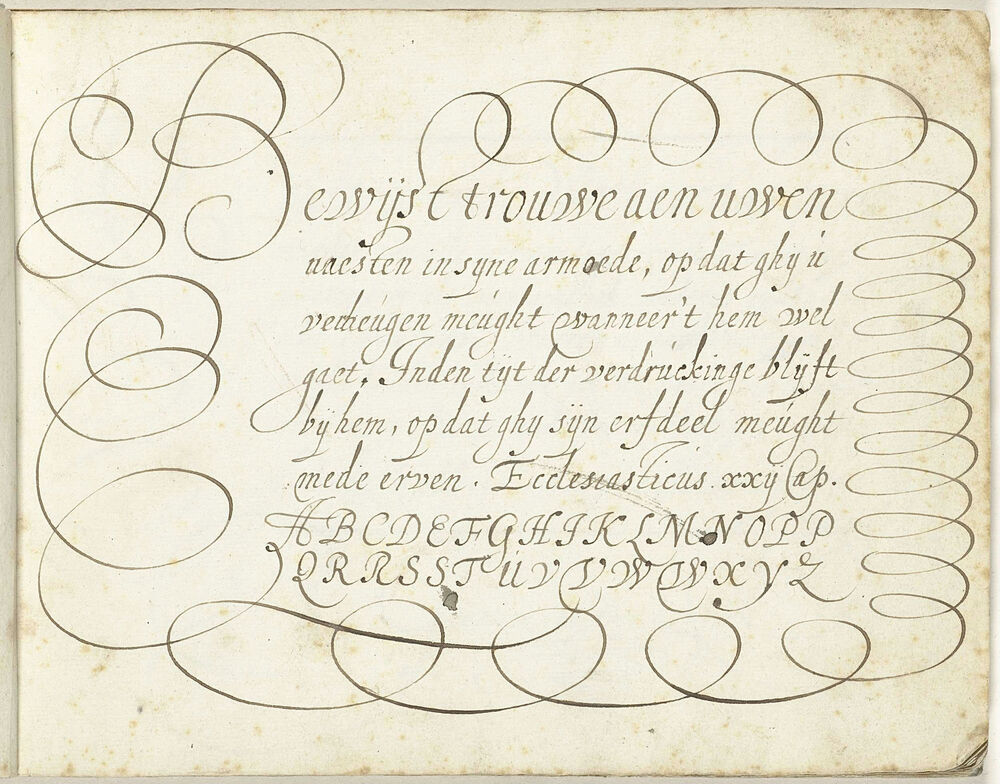 Bewijst trouwe aen uwen
naesten in syne armoede, op dat ghy ú
verheúgen meúght wanneer't hem wel
gaet. Inden tyt der verdrúckinge blyft
by hem, op dat ghy syn erfdeel meúght
mede erven. Ecclesiasticus xxij Cap.
A B C D E F G H I K L M N O P P
Q R R S S T U V V W W X Y Z